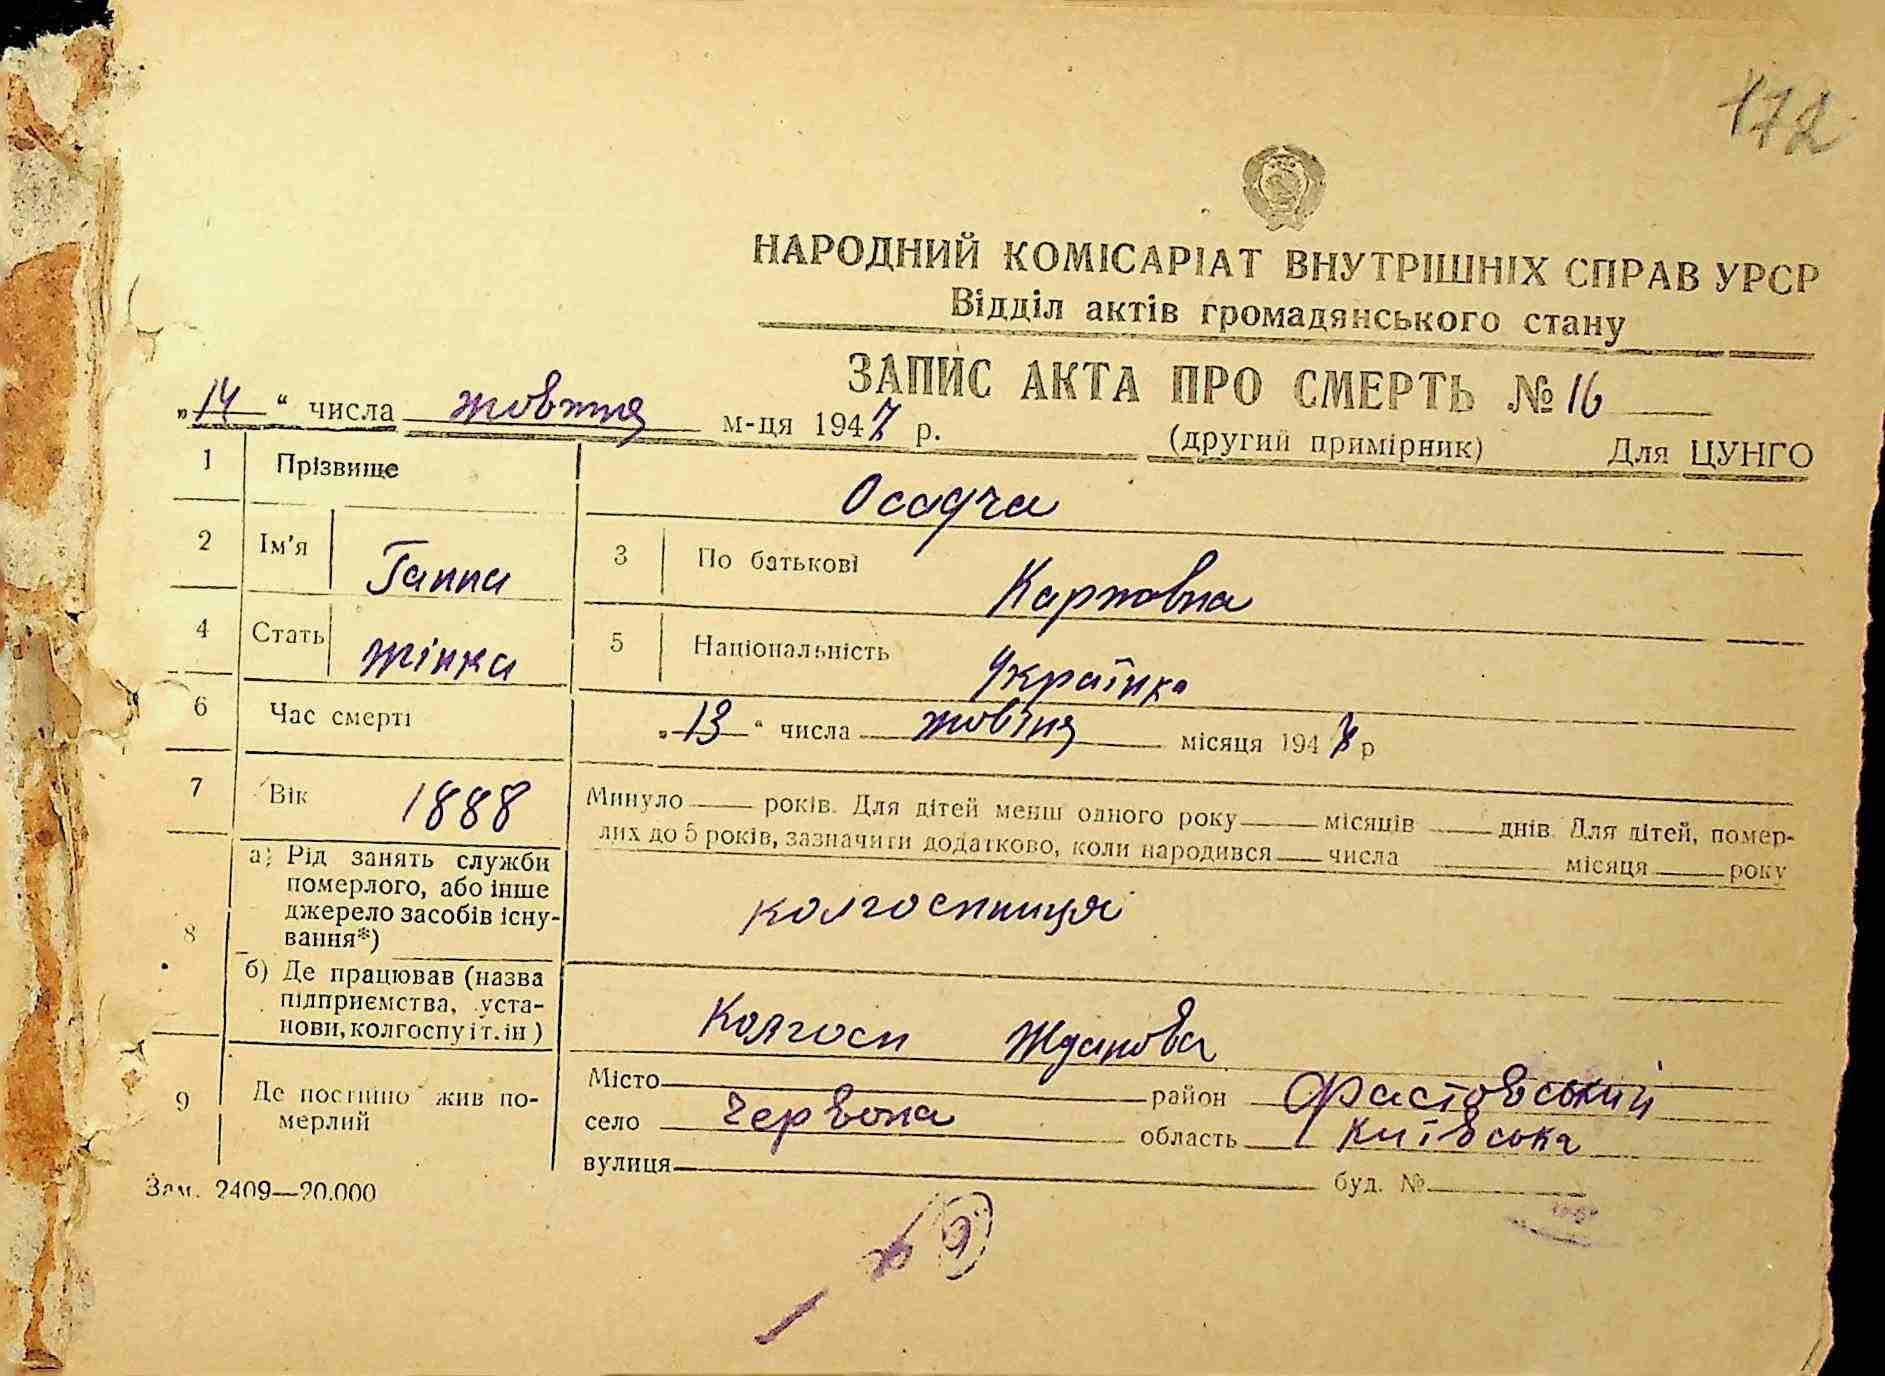 172
НАРОДНИЙ КОМІСАРІАТ ВНУТРІШНІХ СПРАВ УРСР
Відділ актів громадянського стану
ЗАПИС АКТА ПРО СМЕРТЬ № 16
„14“ числа жовтня м-ця 1947 р. (другий примірник) Для ЦУНГО
1 Прізвище Осадча
2 Ім'я Ганна 3 По батькові Карповна
4 Стать жінка 5 Національність Українка
6 Час смерті „13“ числа жовтня місяця 1947 р
7 Вік 1888 Минуло — років. Для дітей менш одного року — місяців — днів. Для дітей, помер-
лих до 5 років, зазначити додатково, коли народився — числа — місяця — року
8 а) Рід занять служби
померлого, або інше
джерело засобів існу-
вання*)
колгоспниця
б) Де працював (назва
підприємства, уста-
нови, колгоспу і т. ін)
Колгосп Жданова
9 Де постійно жив по-
мерлий
Місто район Фастовський
село Червона область Київська
вулиця буд. №
Зам. 2409—20.000